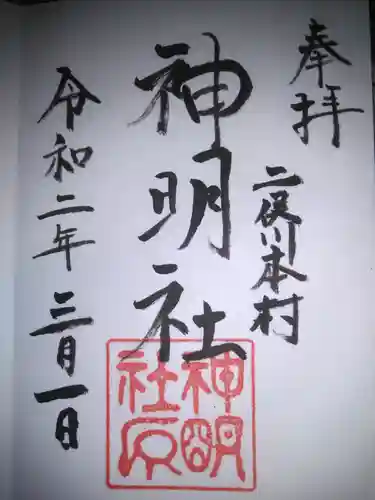 奉拝
二俣川本村
神明社
令和二年三月一日
神明
社印